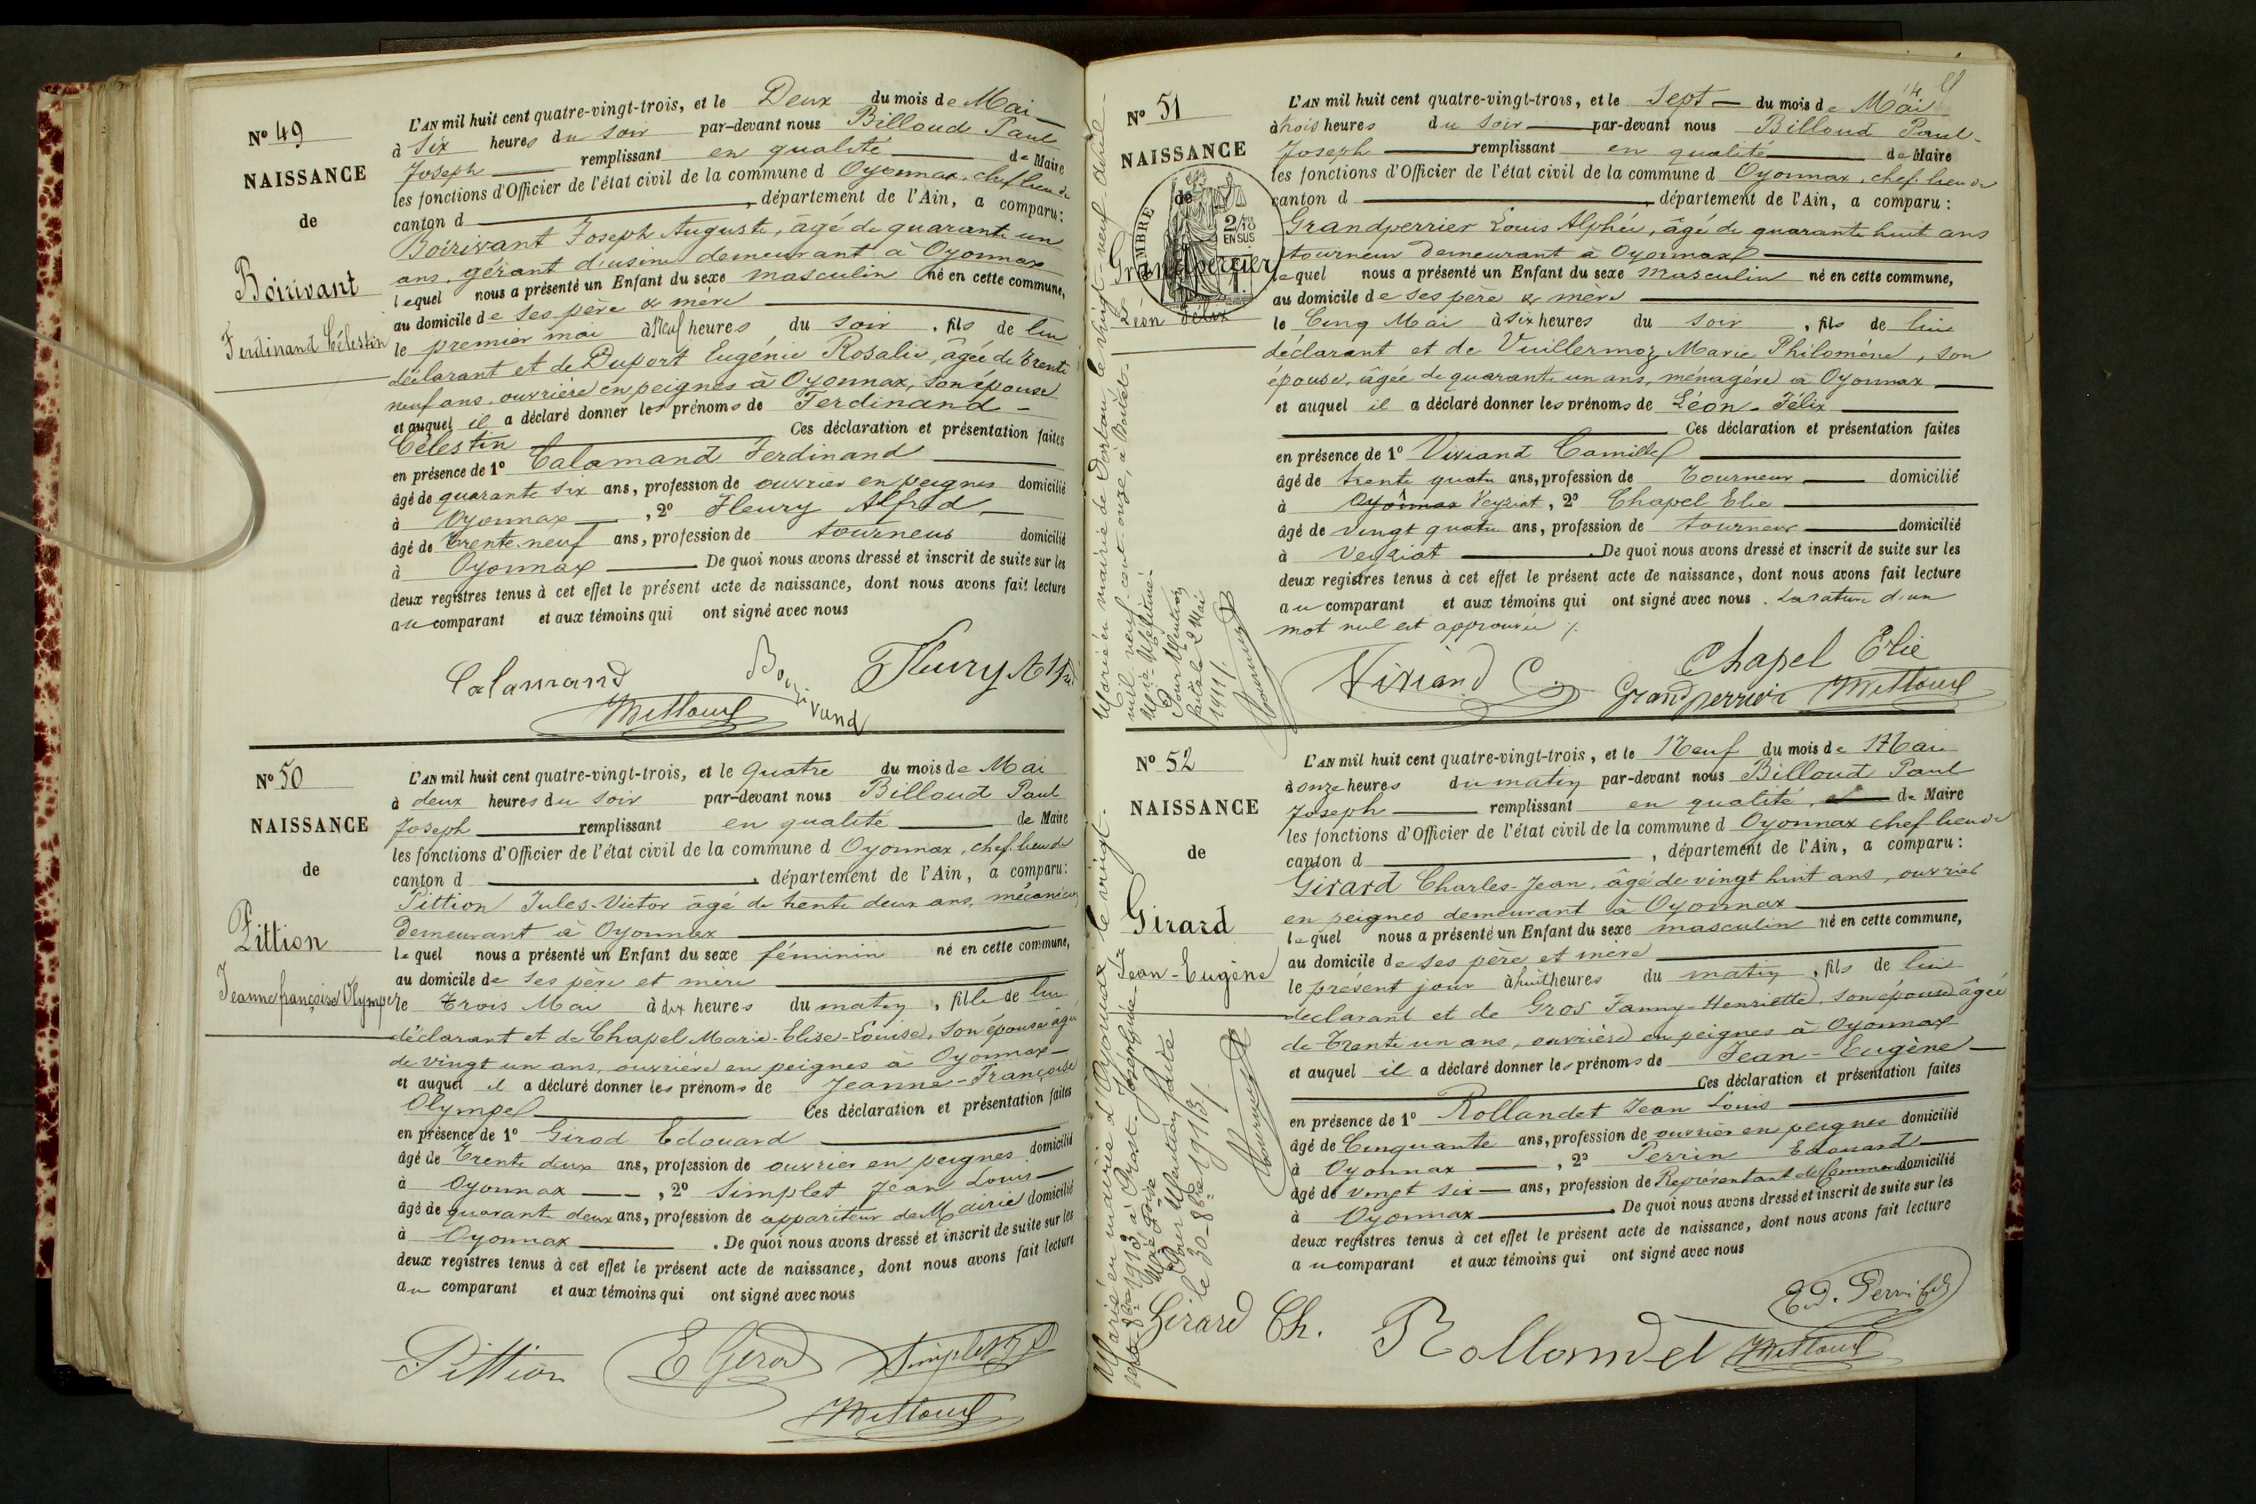 N° 49
NAISSANCE
de
Boirivant
Ferdinand Célestin
L'AN mil huit cent quatre-vingt-trois, et le Deux du mois de Mai
à Six heures du soir par-devant nous Billoud Paul
Joseph remplissant en qualité de Maire
les fonctions d'Officier de l'état civil de la commune d Oyonnax, chef lieu de
canton d , département de l'Ain, a comparu :
Boirivant Joseph Auguste, âgé de quarante un
ans, gérant d'usine demeurant à Oyonnax
lequel nous a présenté un Enfant du sexe masculin né en cette commune,
au domicile de ses père & mère
le premier mai à neuf heures du soir , fils de lui
déclarant et de Duport Eugénie Rosalie, âgée de trente
neuf ans, ouvrière en peignes à Oyonnax, son épouse
et auquel il a déclaré donner les prénoms de Ferdinand -
Célestin Ces déclaration et présentation faites
en présence de 1° Calamand Ferdinand
âgé de quarante six ans, profession de ouvrier en peignes domicilié
à Oyonnax , 2° Fleury Alfred
âgé de trente-neuf ans, profession de tourneur domicilié
à Oyonnax . De quoi nous avons dressé et inscrit de suite sur les
deux registres tenus à cet effet le présent acte de naissance, dont nous avons fait lecture
au comparant et aux témoins qui ont signé avec nous
Calamand Boirivand Fleury Alfred
N° 50
NAISSANCE
de
Pittion
Jeanne françoise Olympe
L'AN mil huit cent quatre-vingt-trois, et le quatre du mois de Mai
à deux heures du soir par-devant nous Billoud Paul
Joseph remplissant en qualité de Maire
les fonctions d'Officier de l'état civil de la commune d Oyonnax, chef lieu de
canton d , département de l'Ain, a comparu :
Pittion Jules-Victor âgé de trente deux ans, mécanicien
demeurant à Oyonnax
lequel nous a présenté un Enfant du sexe féminin né en cette commune,
au domicile de ses père et mère
le trois Mai à dix heures du matin , fille de lui
déclarant et de Chapel Marie-Elise-Louise, son épouse âgée
de vingt un ans, ouvrière en peignes à Oyonnax
et auquel il a déclaré donner les prénoms de Jeanne-Françoise
Olympe Ces déclaration et présentation faites
en présence de 1° Girod Edouard
âgé de trente deux ans, profession de ouvrier en peignes domicilié
à Oyonnax , 2° Simplet Jean Louis
âgé de quarante deux ans, profession de appariteur de Mairie domicilié
à Oyonnax . De quoi nous avons dressé et inscrit de suite sur les
deux registres tenus à cet effet le présent acte de naissance, dont nous avons fait lecture
au comparant et aux témoins qui ont signé avec nous
Pittion E Girod Simplet
N° 51
NAISSANCE
de
Grandperrier
Léon Félix
TIMBRE
2/10
EN SUS
L'AN mil huit cent quatre-vingt-trois, et le Sept du mois de Mai
à trois heures du soir par-devant nous Billoud Paul
Joseph remplissant en qualité de Maire
les fonctions d'Officier de l'état civil de la commune d Oyonnax, chef lieu de
canton d , département de l'Ain, a comparu :
Grandperrier Louis Alphée, âgé de quarante huit ans
tourneur demeurant à Oyonnax
lequel nous a présenté un Enfant du sexe masculin né en cette commune,
au domicile de ses père & mère
le Cinq Mai à six heures du soir , fils de lui
déclarant et de Vuillermoz Marie Philomène, son
épouse, âgée de quarante un ans, ménagère à Oyonnax
et auquel il a déclaré donner les prénoms de Léon-Félix
Ces déclaration et présentation faites
en présence de 1° Viviand Camille
âgé de trente quatre ans, profession de Tourneur domicilié
à Oyonnax Veyziat, 2° Chapel Elie
âgé de vingt quatre ans, profession de tourneur domicilié
à Veyziat . De quoi nous avons dressé et inscrit de suite sur les
deux registres tenus à cet effet le présent acte de naissance, dont nous avons fait lecture
au comparant et aux témoins qui ont signé avec nous. La rature d'un
mot nul est approuvée ./.
Viviand C Chapel Elie
Grandperrier
Marié en mairie de Dortan, le vingt-neuf avril
mil neuf cent onze, à
Pour Mention
faite le 2 Mai
1911/.
N° 52
NAISSANCE
de
Girard
Jean-Eugène
L'AN mil huit cent quatre-vingt-trois, et le Neuf du mois de Mai
à onze heures du matin par-devant nous Billoud Paul
Joseph remplissant en qualité, de Maire
les fonctions d'Officier de l'état civil de la commune d Oyonnax chef lieu de
canton d , département de l'Ain, a comparu :
Girard Charles-Jean, âgé de vingt huit ans, ouvrier
en peignes demeurant à Oyonnax
lequel nous a présenté un Enfant du sexe masculin né en cette commune,
au domicile de ses père et mère
le présent jour à huit heures du matin , fils de lui
déclarant et de Gros Fanny-Henriette, son épouse âgée
de trente un ans, ouvrière en peignes à Oyonnax
et auquel il a déclaré donner les prénoms de Jean-Eugène
Ces déclaration et présentation faites
en présence de 1° Rollandet Jean Louis
âgé de Cinquante ans, profession de ouvrier en peignes domicilié
à Oyonnax , 2° Perrin Edouard
âgé de vingt six ans, profession de Représentant de Commerce domicilié
à Oyonnax . De quoi nous avons dressé et inscrit de suite sur les
deux registres tenus à cet effet le présent acte de naissance, dont nous avons fait lecture
au comparant et aux témoins qui ont signé avec nous
Girard Ch. Rollandet Ed. Perrin
Marié en mairie d'Oyonnax le vingt-
sept 8bre 1913 à Prost-Joséphine-
Marie
Pour Mention faite
le 30-8bre 1913/.